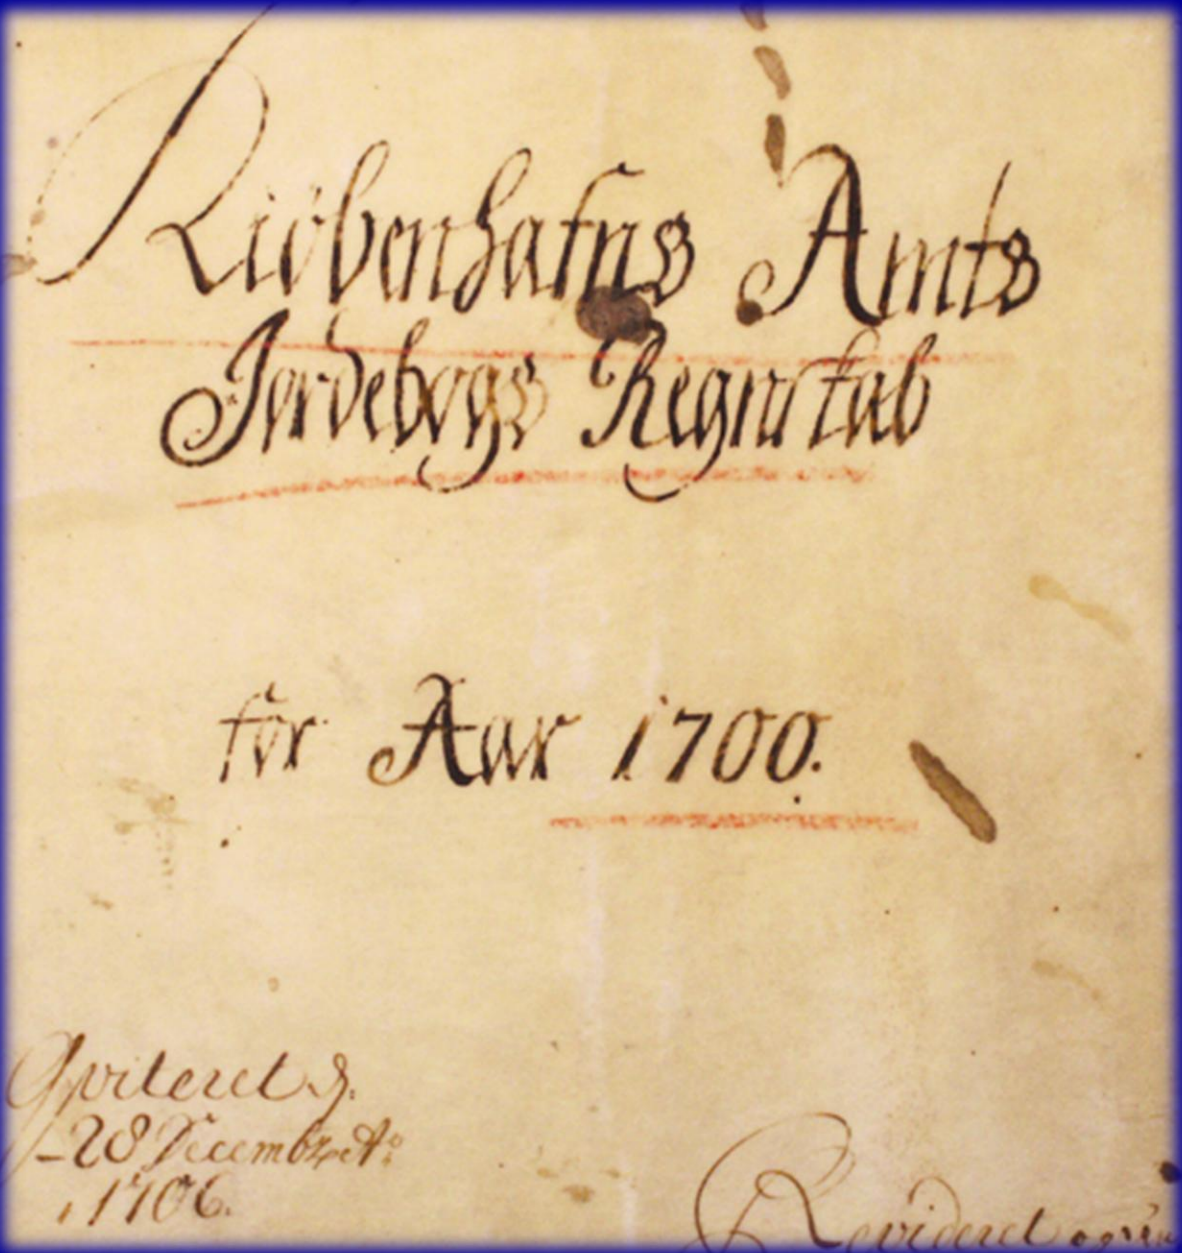 Kiöbenhafns Amts
Jordebogs Regnskab
for Aar 1700.
Qviteret d.
28 Decembr Ao
1706.
Revideret